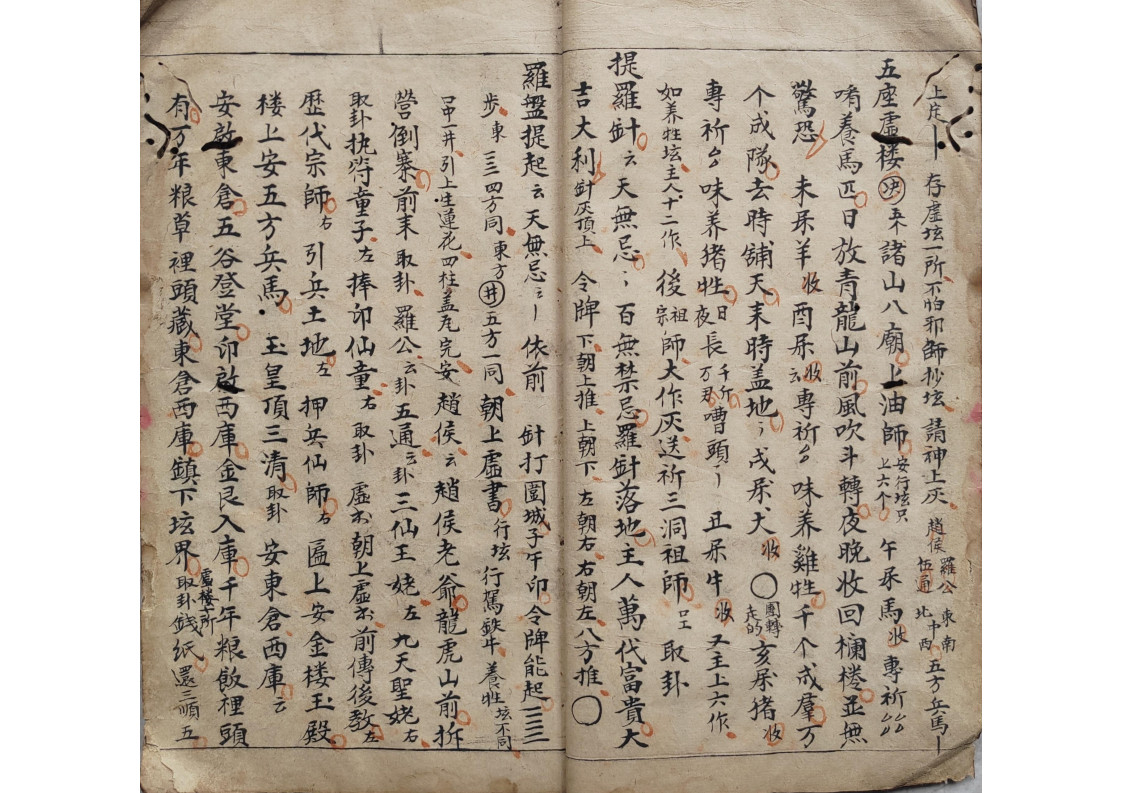 上疌丨存虚坛一所不怕邪師抄坛請神上灰趙侯羅公伍通東南北中西五方兵馬丨
五座虛楼諸山八廟上油師安行坛只上六个午屎馬收專祈
唷養馬匹日放青龍山前風吹斗轉夜晚收回欄楼並無
驚恐未屎羊收酉屎收云專祈味養雞牲千个成羣万
个成隊去時舖天耒時盖地戌屎犬收〇團轉走的亥屎猪收
專祈味養猪牲日夜長千斤万君嘈頭丑屎牛收又主上六作
如养牲坛主人十二作後祖宗師大作灰送祈三洞祖師取卦
提羅針云天無忌百無禁忌羅針落地主人萬代富貴大
吉大利針灰頂上令牌下朝上推上朝下左朝右右朝左八方推〇
羅盤提起云天無忌丨依前針打圍城子午印令牌能起三三
步東三三四方同東方井五方一同朝上虛書行坛行駕鉄牛養牲坛不同
吊一井引上生蓮花四柱盖完安趙侯云趙侯老爺龍虎山前拆
营倒寨前耒取卦羅公云卦五通云卦三仙王姥左九天聖姥右
取卦执符童子左捧印仙童右取卦虛朝上虛前傳後教左
歷代宗師右引兵土地左押兵仙師右匾上安金楼玉殿
楼上安五方兵馬玉皇頂三清取卦安東倉西庫云
安啟東倉五谷登堂印啟西庫金艮入庫千年粮飯裡頭
有万年粮草裡頭藏東倉西庫鎮下坛界虛楼一所取卦錢紙還三順五